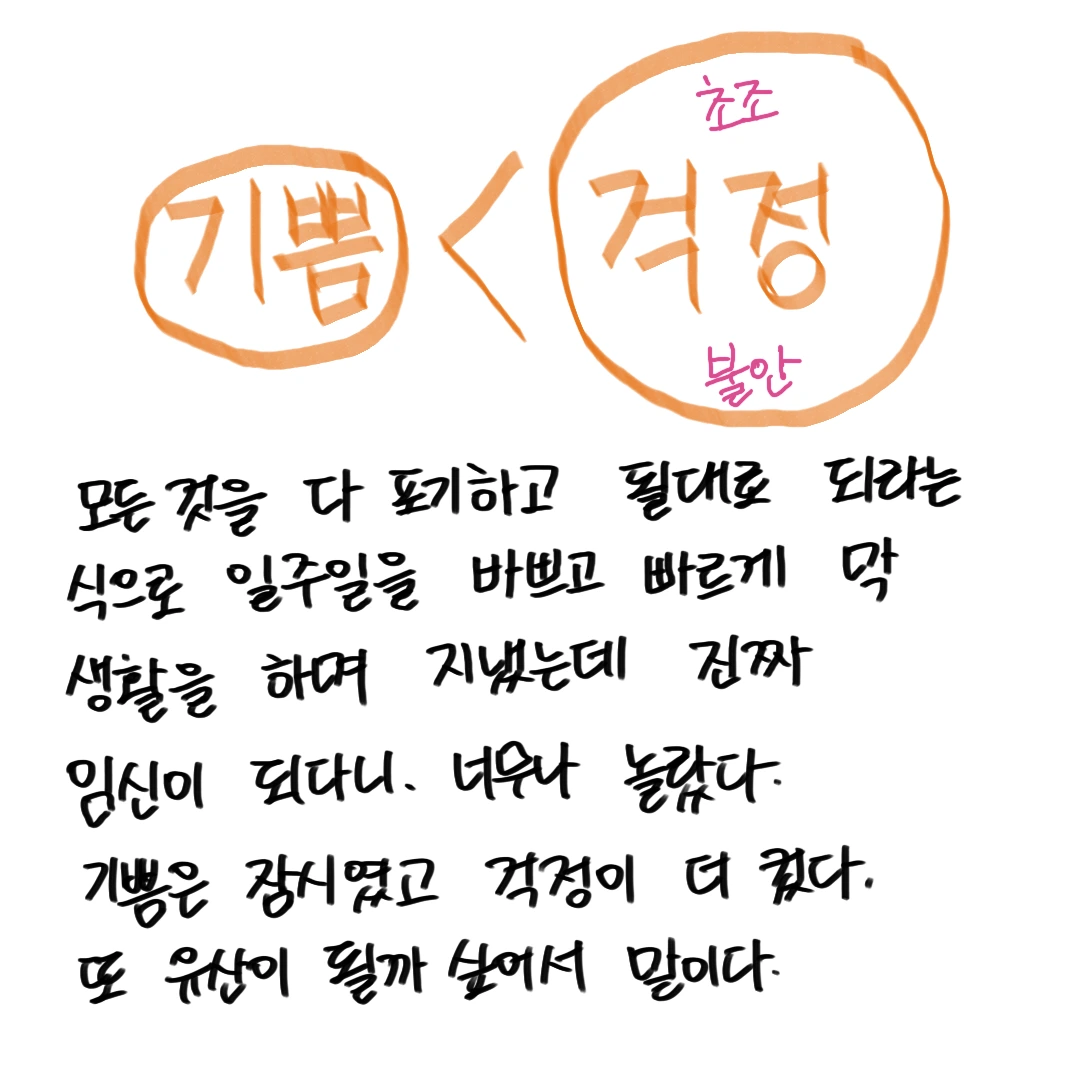 초조
기쁨 < 걱정
불안
모든 것을 다 포기하고 될대로 되라는
식으로 일주일을 바쁘고 빠르게 막
생활을 하며 지냈는데 진짜
임신이 되다니. 너무나 놀랐다.
기쁨은 잠시였고 걱정이 더 컸다.
또 유산이 될까 싶어서 말이다.